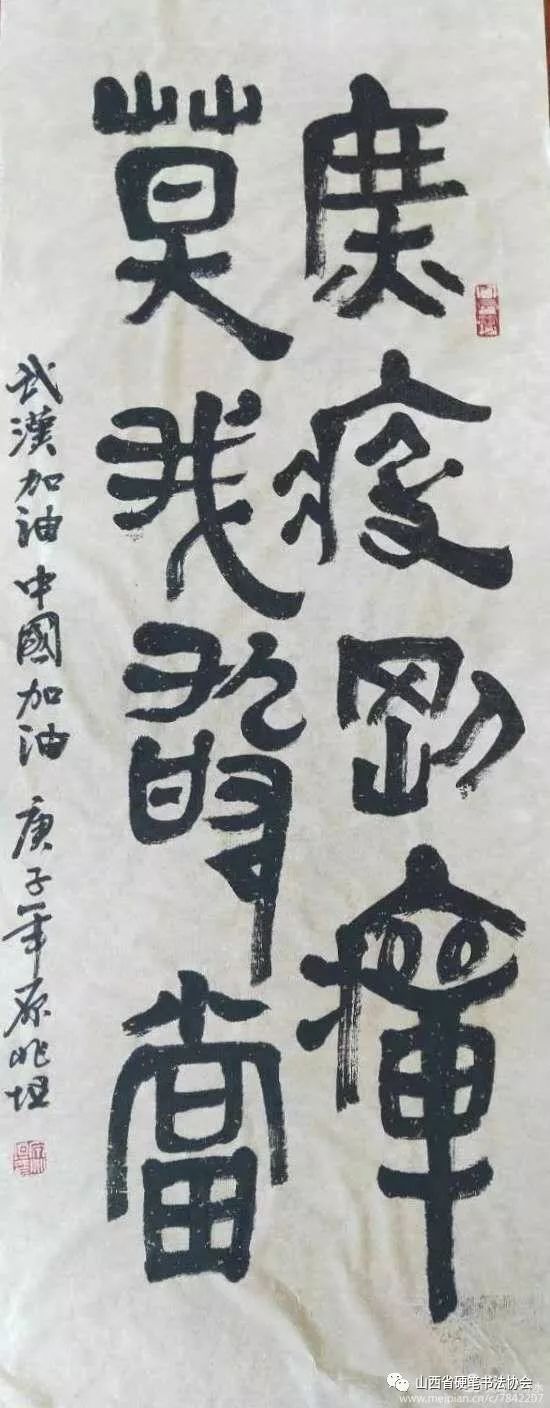 庶疫剛癉
莫我敢當
武漢加油 中國加油 庚子年原
山西省硬笔书法协会
www.meipian.cn/c/7842207